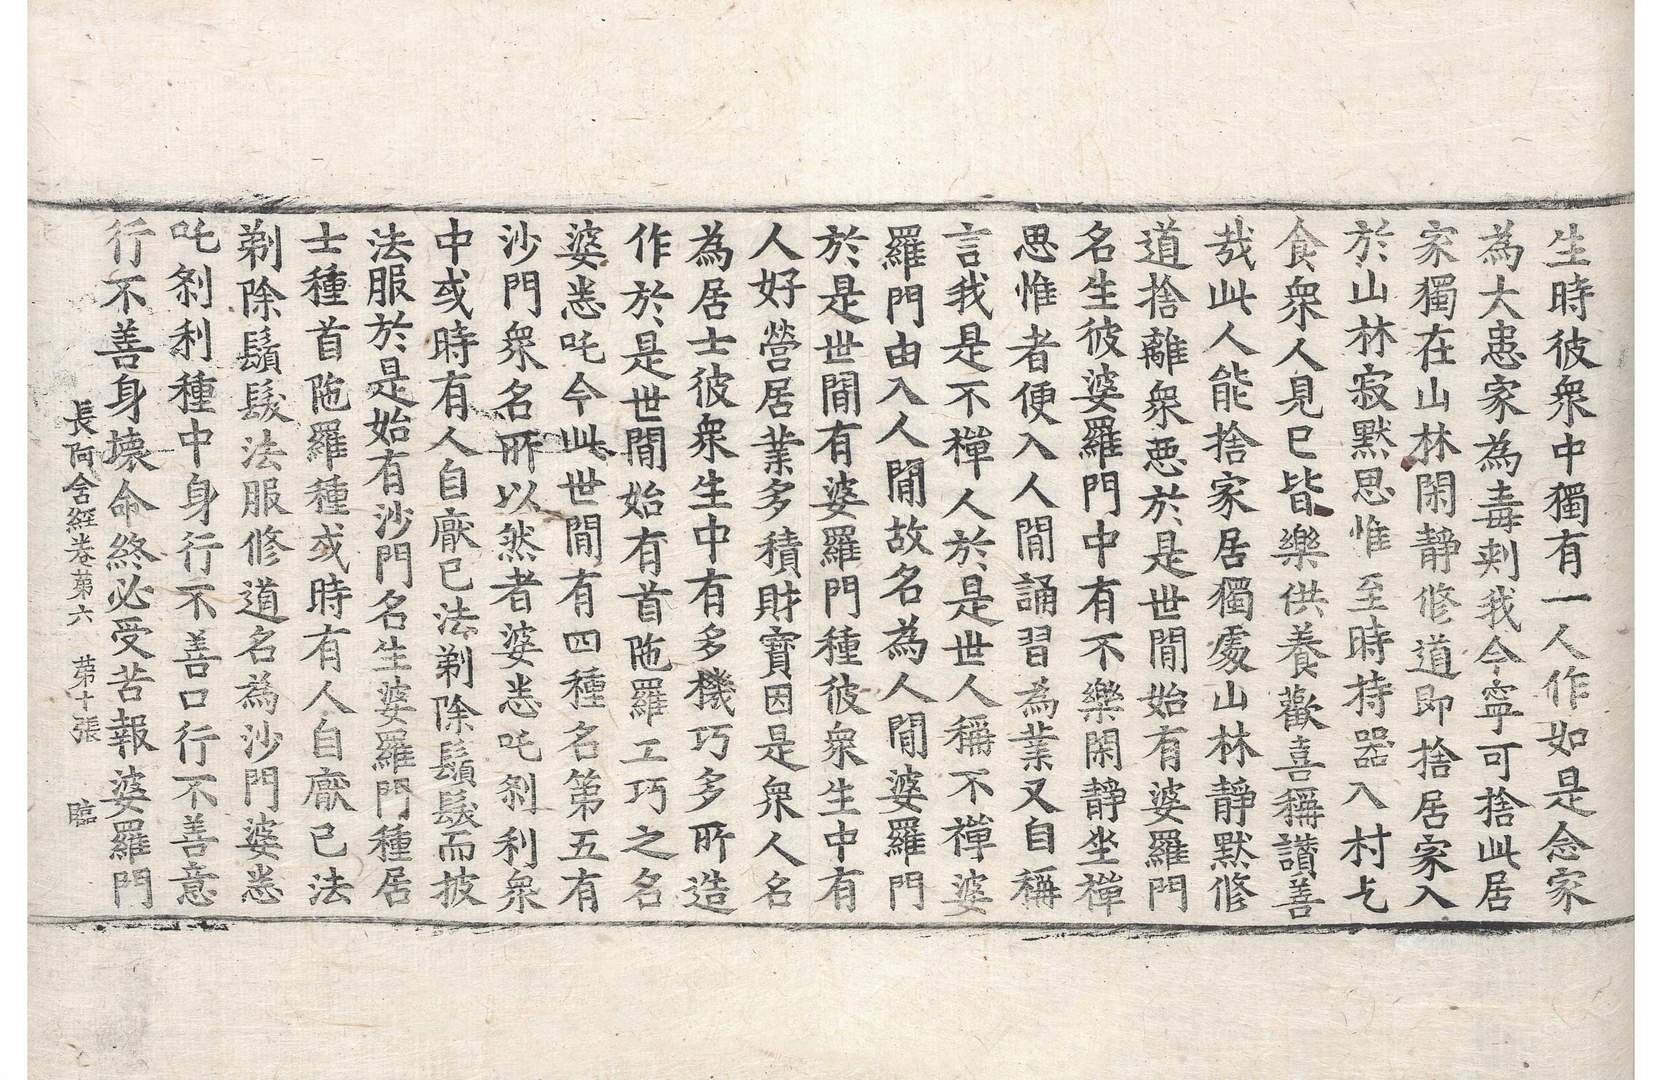 生時彼衆中獨有一人作如是念家
為大患家為毒刾我今寧可捨此居
家獨在山林閑靜修道即捨居家入
於山林寂默思惟至時持器入村乞
食衆人見已皆樂供養歡喜稱讃善
哉此人能捨家居獨處山林靜默修
道捨離衆惡於是世閒始有婆羅門
名生彼婆羅門中有不樂閑靜坐禪
思惟者便入人閒誦習為業又自稱
言我是不禪人於是世人稱不禪婆
羅門由入人閒故名為人閒婆羅門
於是世閒有婆羅門種彼衆生中有
人好營居業多積財寶因是衆人名
為居士彼衆生中有多機巧多所造
作於是世閒始有首陁羅工巧之名
婆悉吒今此世閒有四種名第五有
沙門衆名所以然者婆悉吒刹利衆
中或時有人自厭已法剃除鬚髮而披
法服於是始有沙門名生婆羅門種居
士種首陁羅種或時有人自厭已法
剃除鬚髮法服修道名為沙門婆悉
吒刹利種中身行不善口行不善意
行不善身壞命終必受苦報婆羅門
長阿含經卷苐六 苐十張 臨